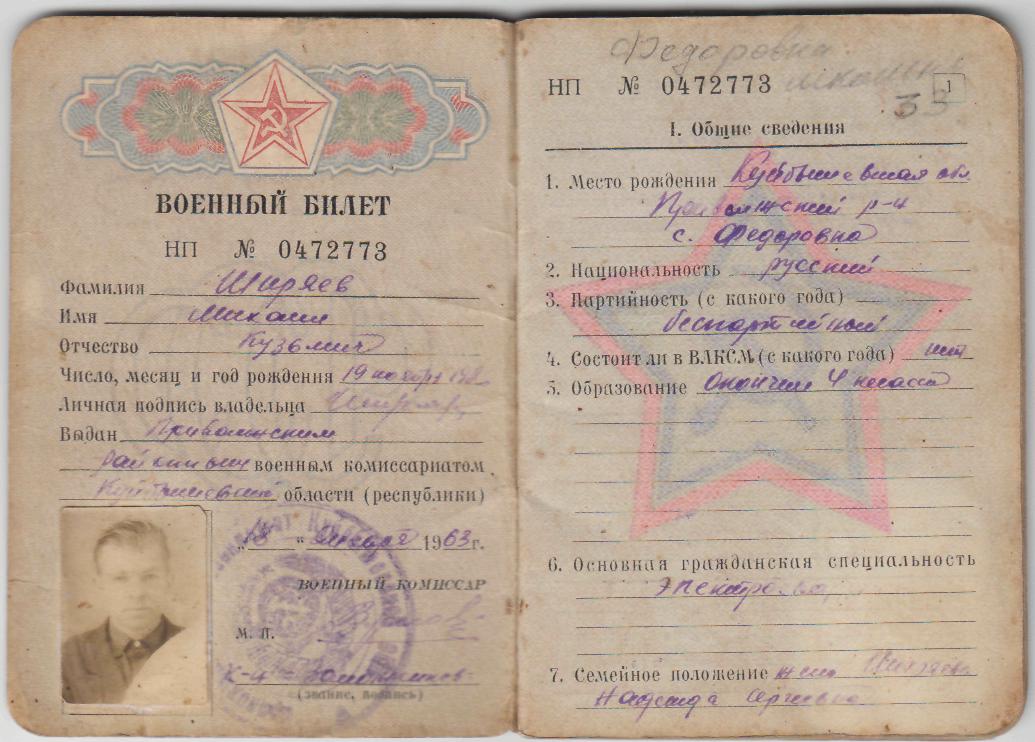 ВОЕННЫЙ БИЛЕТ
НП № 0472773
Фамилия Ширяев
Имя Михаил
Отчество Кузьмич
Число, месяц и год рождения 19 ноября
Личная подпись владельца
Выдан Приволжским
районным военным комиссариатом
Куйбышевской области (республики)
„18 “ 1963 г.
ВОЕННЫЙ КОМИССАР
М. П.
(звание, подпись)
Федоровка
НП № 0472773
1
33
I. Общие сведения
1. Место рождения Куйбышевская обл
Приволжский р-н
с. Федоровка
2. Национальность русский
3. Партийность (с какого года)
беспартийный
4. Состоит ли в ВЛКСМ (с какого года) нет
5. Образование Окончил 4 класса
6. Основная гражданская специальность
7. Семейное положение жена Ширяева
Надежда Сергеевна